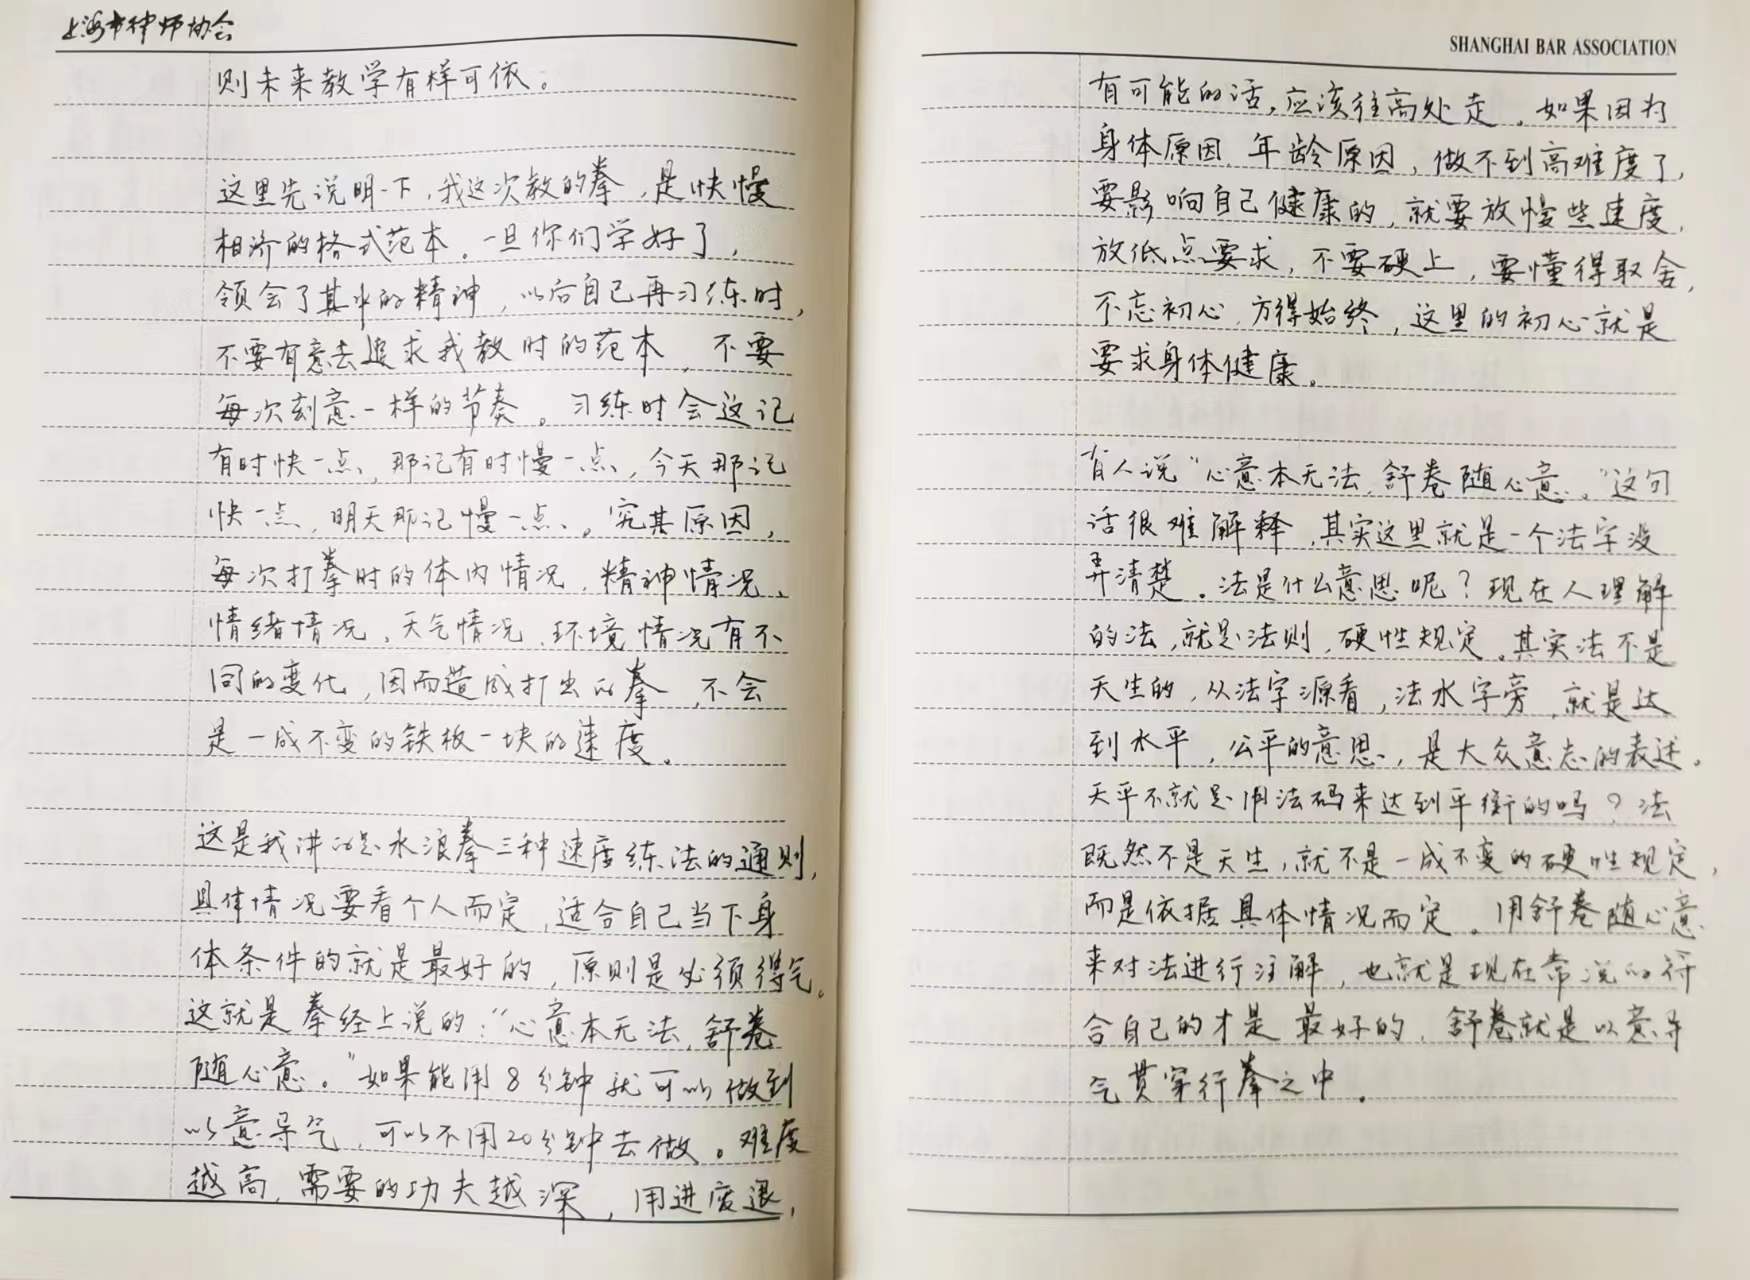 上海市律师协会
则未来教学有样可依。
这里先说明一下,我这次教的拳,是快慢
相济的格式范本。一旦你们学好了,
领会了其中的精神,以后自己再习练时,
不要有意去追求我教时的范本,不要
每次刻意一样的节奏。习练时会这记
有时快一点、那记有时慢一点,今天那记
快一点,明天那记慢一点、。究其原因,
每次打拳时的体内情况,精神情况、
情绪情况、天气情况、环境情况有不
同的变化,因而造成打出的拳,不会
是一成不变的铁板一块的速度。
这是我讲的是水浪拳三种速度练法的通则,
具体情况要看个人而定,适合自己当下身
体条件的就是最好的,原则是必须得气。
这就是拳经上说的:“心意本无法,舒卷
随心意。”如果能用8分钟就可以做到
以意导气,可以不用20分钟去做。难度
越高,需要的功夫越深,用进废退,
SHANGHAI BAR ASSOCIATION
有可能的话,应该往高处走。如果因为
身体原因、年龄原因,做不到高难度了,
要影响自己健康的,就要放慢些速度,
放低点要求,不要硬上,要懂得取舍,
不忘初心,方得始终,这里的初心就是
要求身体健康。
有人说“心意本无法,舒卷随心意。”这句
话很难解释,其实这里就是一个法字没
弄清楚。法是什么意思呢?现在人理解
的法,就是法则,硬性规定。其实法不是
天生的,从法字源看,法水字旁,就是达
到水平,公平的意思,是大众意志的表述。
天平不就是用法码来达到平衡的吗?法
既然不是天生,就不是一成不变的硬性规定,
而是依据具体情况而定。用舒卷随心意
来对法进行注解,也就是现在常说的符
合自己的才是最好的,舒卷就是以意导
气贯穿行拳之中。